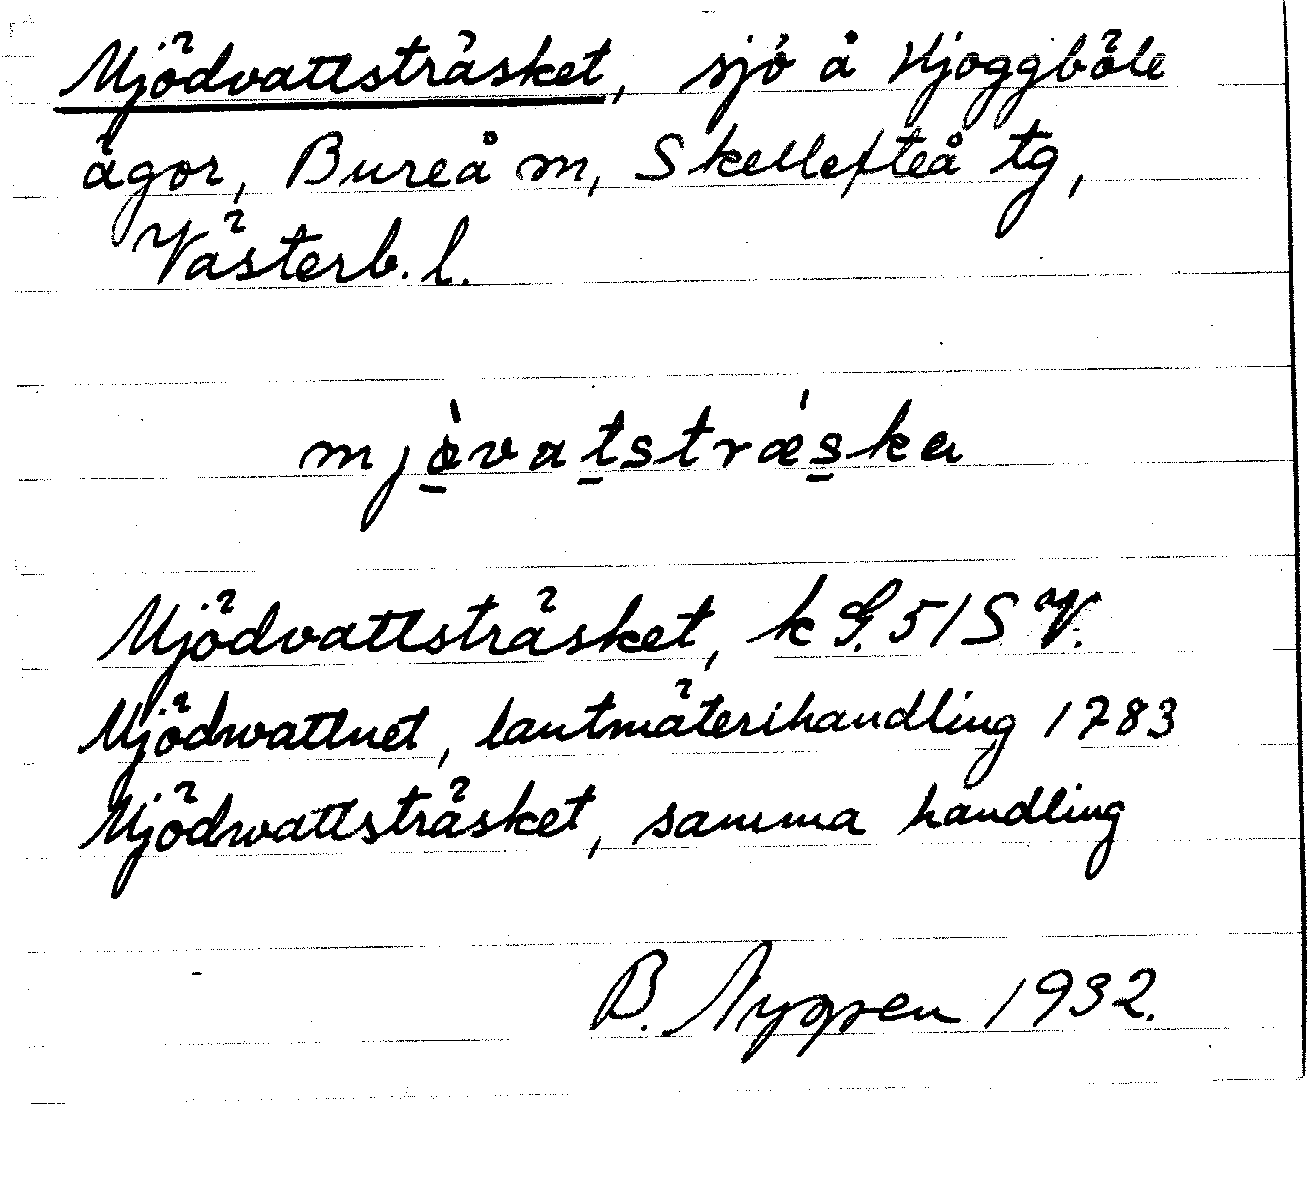 Mjödvattsträsket, sjö å Hjoggböle
ägor, Bureå m, Skellefteå tg,
Västerb. l.
mjòvatstrǽska
Mjödvattsträsket, k G. 51 S V.
Mjödwattnet, lantmäterihandling 1783
Mjödwattsträsket, samma handling
B. 1932.